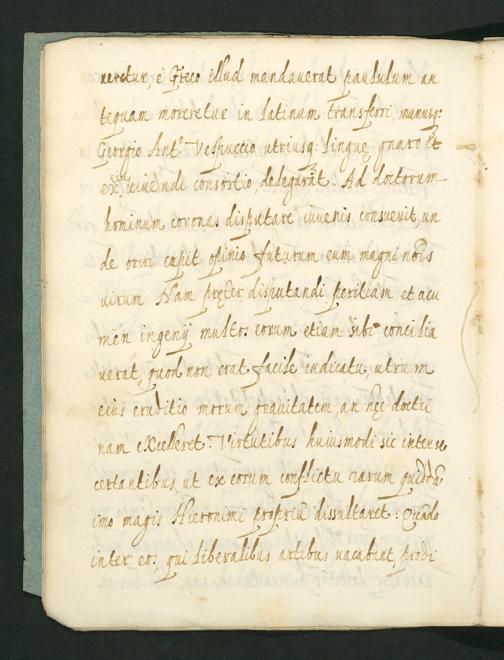 neretur, è Greco illud mandauerat paululum an
tequam moreretur in latinum transferri, munusq:
Georgio Ant.º Vespuccio utriusq: linguę gnaro et
uiuendi consortio, delegarãt. Ad doctorum
hominum coronas disputare iuuenis consueuit, un
de oriri cępit opinio futurum eum magni nõis
uirum. Nam pręter disputandi peritiam et acu
men ingenij multoꝝ eorum etiam sibi concilia
uerat, quod non erat facile iudicatu, utrum
eius eruditio morum grauitatem an hęc doctri
nam excelleret. Virtutibus huiusmodi sic intense
certantibus ut ex eorum conflictu rarum quiddã
imo magis Hieronimi propriũ dissultaret. Quãdo
inter eos qui liberalibus artibus uacabant, prodi